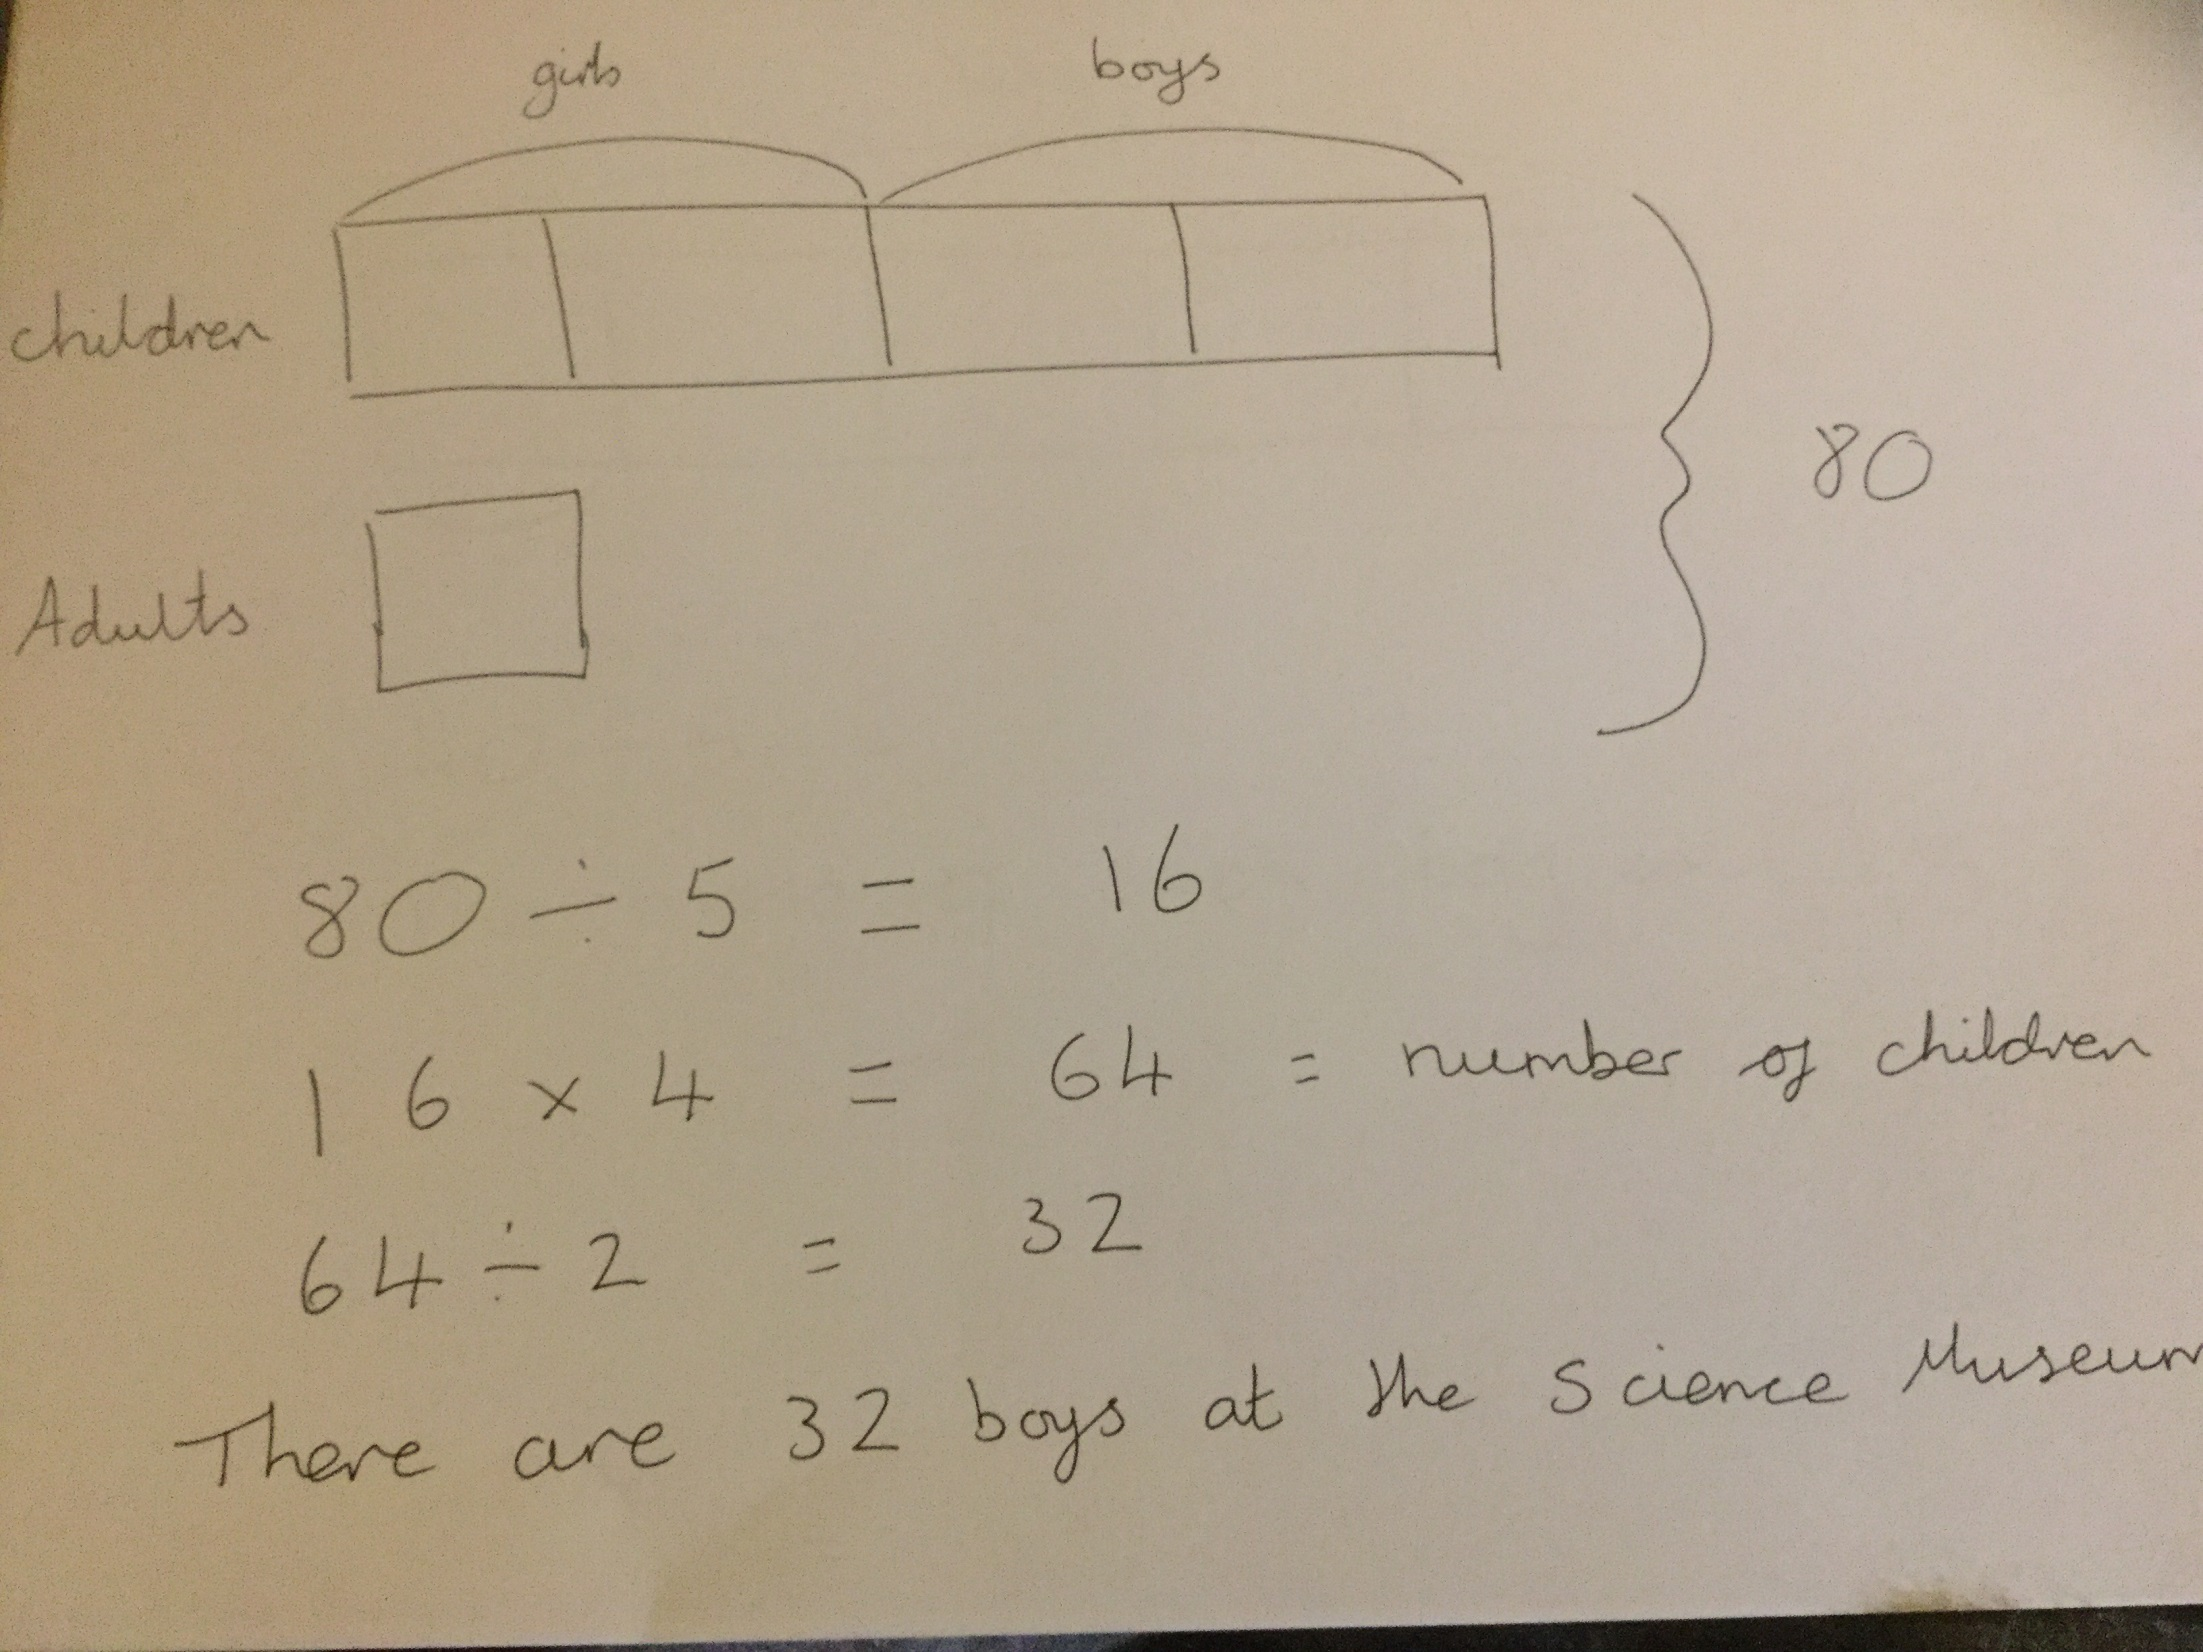 girls boys
children
80
Adults
80 ÷ 5 = 16
16 × 4 = 64 = number of children
64 ÷ 2 = 32
There are 32 boys at the Science Museum